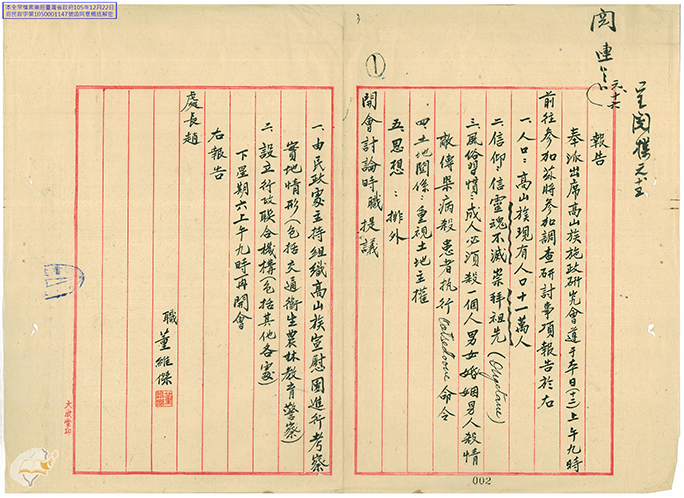 本全宗檔案業經臺灣省政府105年12月22日
府民政字第1050001147號函同意概括解密
呈閱 
六、十六
①
報告
奉派出席高山族施政研究會遵于本日(十三)上午九時
前往參加茲將參加調查研討事項報告於右
一、人口：高山族現有人口十一萬人
二、信仰：信靈魂不滅崇拜祖先(Ougotane)
三、風俗習慣：成人必須殺一個人男女婚姻男人殺情
敵傳染病殺患者執行 命令
四、土地關係：重視土地主權
五、思想：排外
開會討論時職提議
一、由民政處主持組織高山族宣慰團進行考察
實地情形(包括交通衛生農林教育警察)
二、設立行政联合機構(包括其他各處)
下星期六上午九時再開會
右報告
處長趙
職 董維傑
大成堂印
002